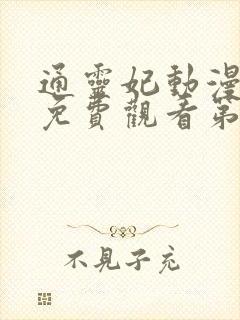 通靈妃動漫
免費觀看第
不見子充